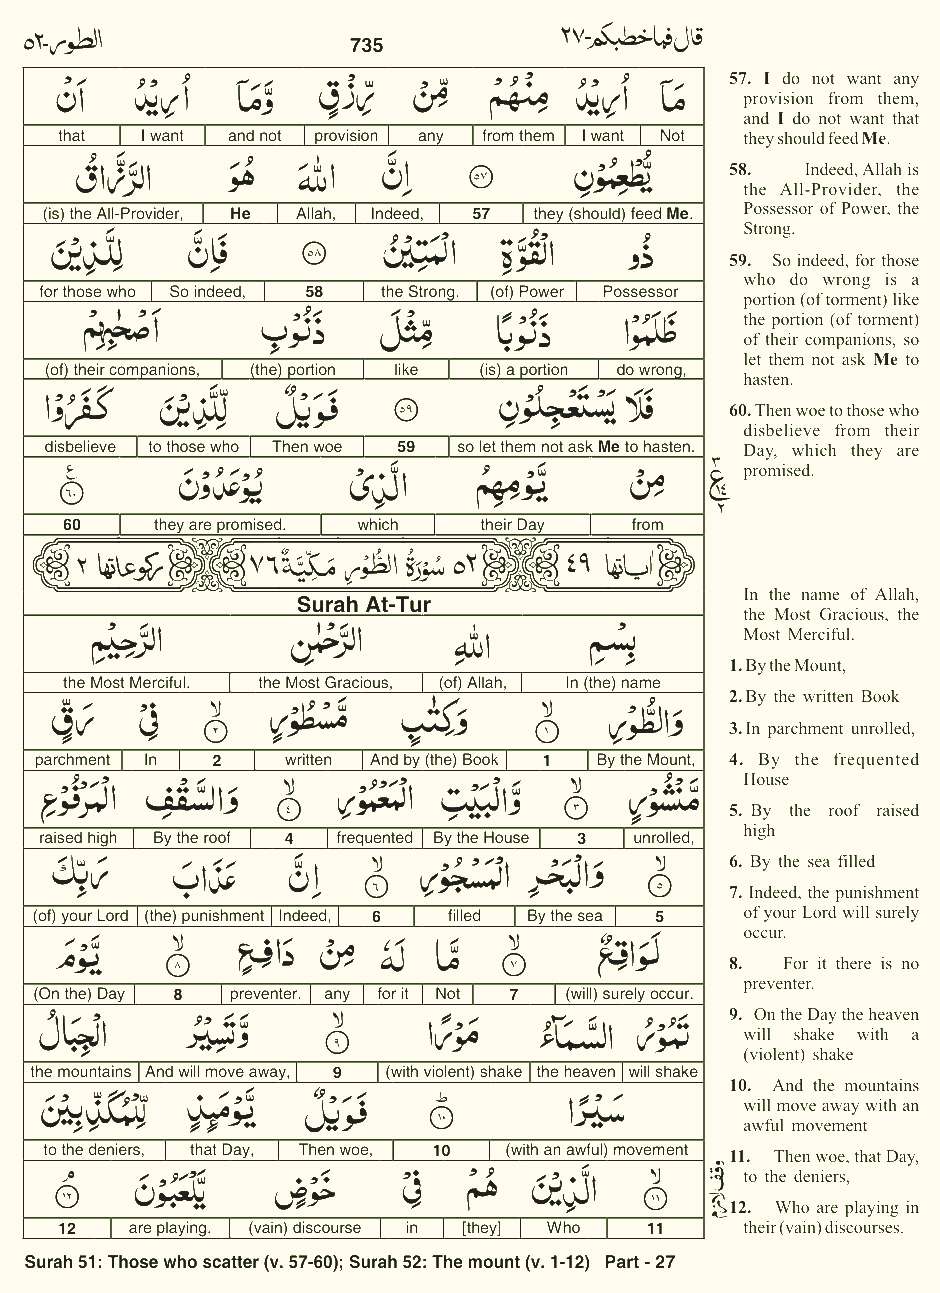 قال فما خطبكم-٢٧
735
الطور-٥٢
مَآ أُرِيدُ مِنْهُمْ مِّنْ رِّزْقٍ وَّمَآ أُرِيدُ أَنْ
that I want and not provision any from them I want Not
يُّطْعِمُوْنِ ٥٧ إِنَّ اللّٰهَ هُوَ الرَّزَّاقُ
(is) the All-Provider, He Allah, Indeed, 57 they (should) feed Me.
ذُو الْقُوَّةِ الْمَتِيْنُ ٥٨ فَإِنَّ لِلَّذِيْنَ
for those who So indeed, 58 the Strong. (of) Power Possessor
ظَلَمُوْا ذَنُوْبًا مِّثْلَ ذَنُوْبِ أَصْحٰبِهِمْ
(of) their companions, (the) portion like (is) a portion do wrong,
فَلَا يَسْتَعْجِلُوْنِ ٥٩ فَوَيْلٌ لِّلَّذِيْنَ كَفَرُوْا
disbelieve to those who Then woe 59 so let them not ask Me to hasten.
مِنْ يَّوْمِهِمُ الَّذِىْ يُوْعَدُوْنَ ٦٠
60 they are promised. which their Day from
اٰيَاتُهَا ٤٩ ٥٢ سُوْرَةُ الطُّوْرِ مَكِّيَّةٌ ٧٦ رُكُوْعَاتُهَا ٢
Surah At-Tur
بِسْمِ اللّٰهِ الرَّحْمٰنِ الرَّحِيْمِ
the Most Merciful. the Most Gracious, (of) Allah, In (the) name
وَالطُّوْرِ ١ وَكِتٰبٍ مَّسْطُوْرٍ ٢ فِىْ رَقٍّ
parchment In 2 written And by (the) Book 1 By the Mount,
مَّنْشُوْرٍ ٣ وَّالْبَيْتِ الْمَعْمُوْرِ ٤ وَالسَّقْفِ الْمَرْفُوْعِ
raised high By the roof 4 frequented By the House 3 unrolled,
٥ وَالْبَحْرِ الْمَسْجُوْرِ ٦ إِنَّ عَذَابَ رَبِّكَ
(of) your Lord (the) punishment Indeed, 6 filled By the sea 5
لَوَاقِعٌ ٧ مَّا لَهٗ مِنْ دَافِعٍ ٨ يَّوْمَ
(On the) Day 8 preventer. any for it Not 7 (will) surely occur.
تَمُوْرُ السَّمَآءُ مَوْرًا ٩ وَّتَسِيْرُ الْجِبَالُ
the mountains And will move away, 9 (with violent) shake the heaven will shake
سَيْرًا ١٠ فَوَيْلٌ يَّوْمَئِذٍ لِّلْمُكَذِّبِيْنَ
to the deniers, that Day, Then woe, 10 (with an awful) movement
١١ الَّذِيْنَ هُمْ فِىْ خَوْضٍ يَّلْعَبُوْنَ ١٢
12 are playing. (vain) discourse in [they] Who 11
57. I do not want any
provision from them,
and I do not want that
they should feed Me.
58. Indeed, Allah is
the All-Provider, the
Possessor of Power, the
Strong.
59. So indeed, for those
who do wrong is a
portion (of torment) like
the portion (of torment)
of their companions, so
let them not ask Me to
hasten.
60. Then woe to those who
disbelieve from their
Day, which they are
promised.
In the name of Allah,
the Most Gracious, the
Most Merciful.
1. By the Mount,
2. By the written Book
3. In parchment unrolled,
4. By the frequented
House
5. By the roof raised
high
6. By the sea filled
7. Indeed, the punishment
of your Lord will surely
occur.
8. For it there is no
preventer.
9. On the Day the heaven
will shake with a
(violent) shake
10. And the mountains
will move away with an
awful movement
11. Then woe, that Day,
to the deniers,
12. Who are playing in
their (vain) discourses.
Surah 51: Those who scatter (v. 57-60); Surah 52: The mount (v. 1-12) Part - 27